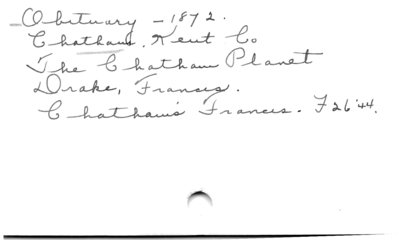 Obituary - 1872.
Chatham, Kent Co
The Chatham Planet
Drake, Francis.
Chatham's Francis. F 26 '44.